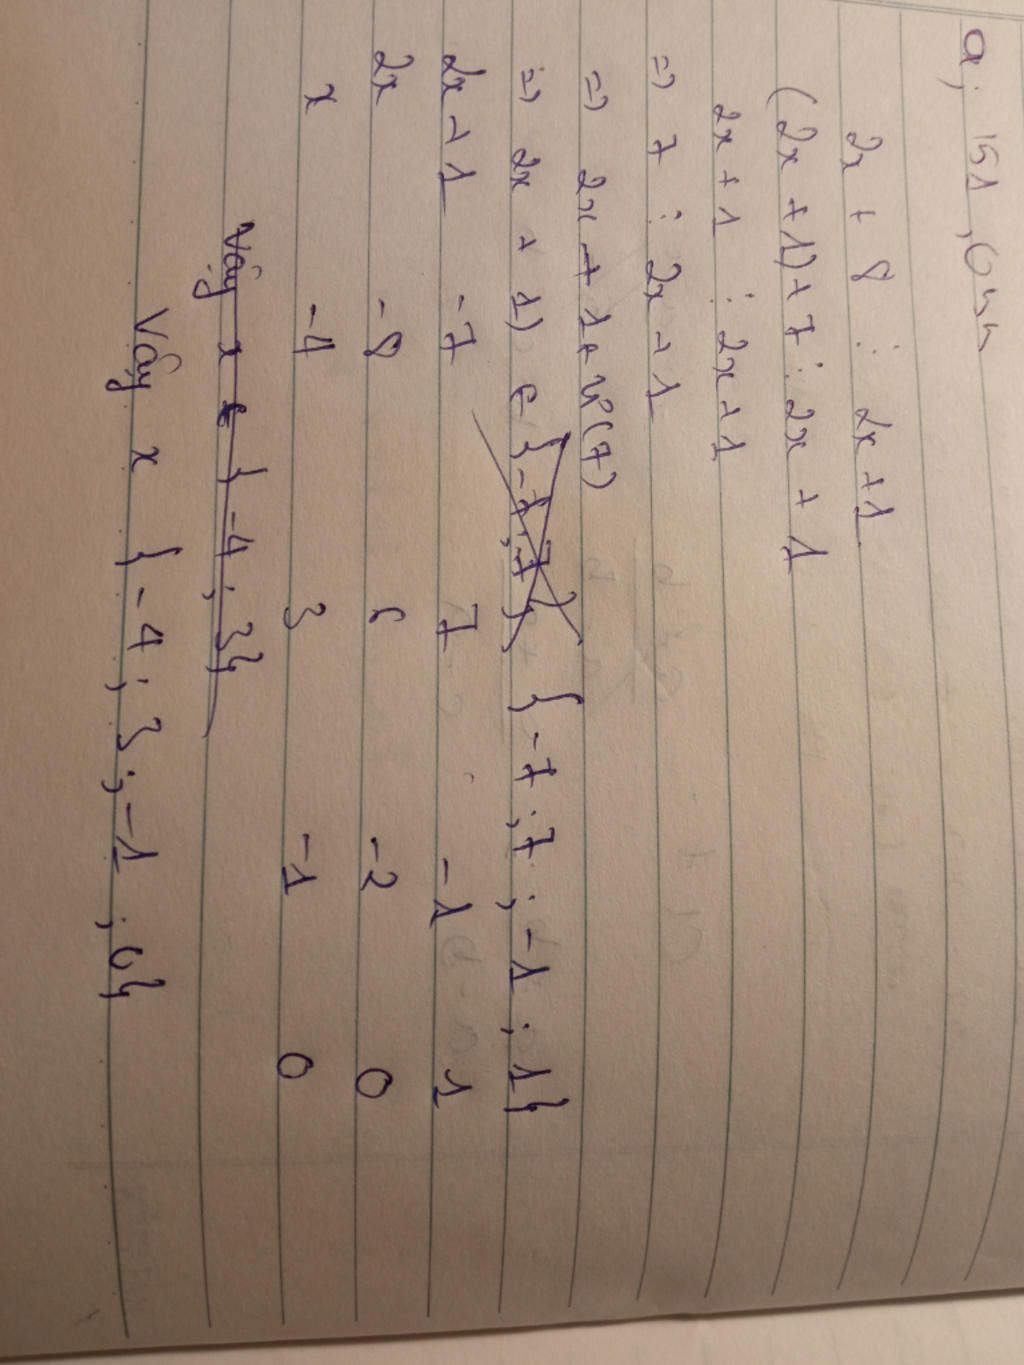 a, 151,
2x + 8 ⋮ 2x + 1
(2x + 1) + 7 ⋮ 2x + 1
2x + 1 ⋮ 2x + 1
=> 7 ⋮ 2x + 1
=> 2x + 1 + Ư(7)
=> 2x + 1) ∈ {-7, 7} {-7; 7; -1; 1}
2x + 1 -7 7 -1 1
2x -8 6 -2 0
x -4 3 -1 0
Vậy x ∈ {-4; 3}
Vậy x {-4; 3; -1; 0}